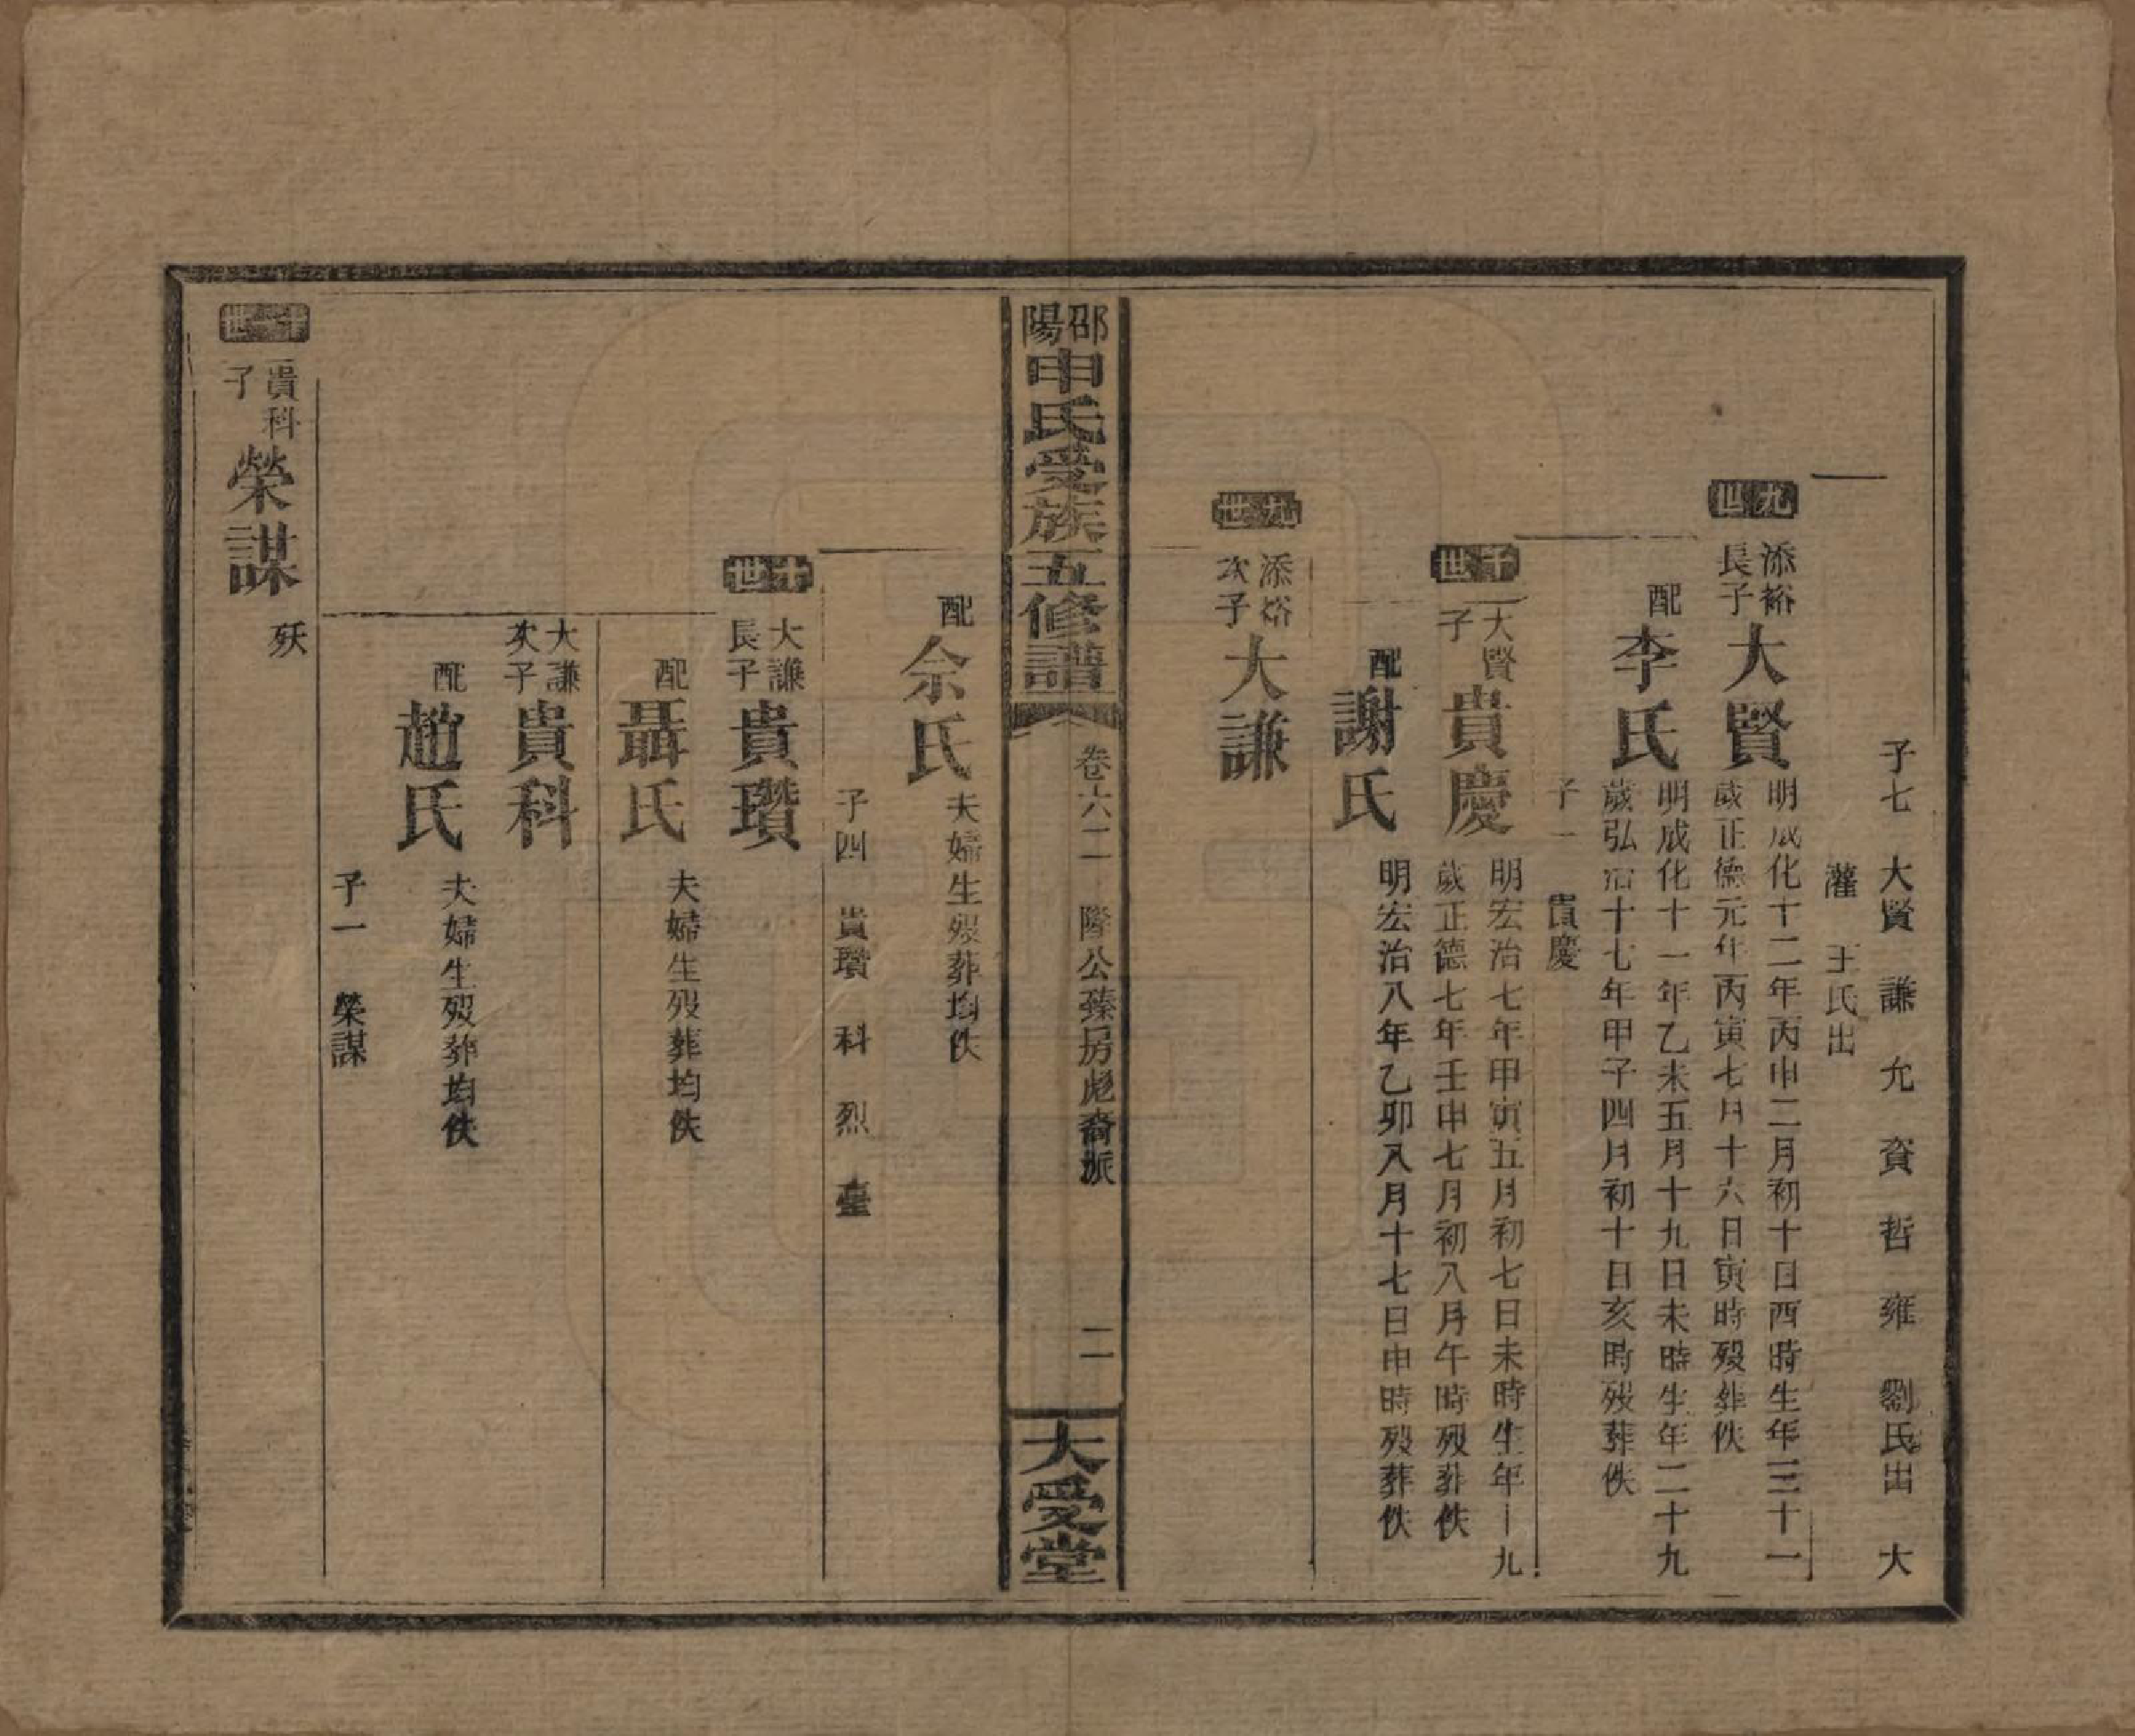 子七　大賢　謙　允　資　哲　雍　劉氏出　大
灌　王氏出
九世
添裕長子大賢
明成化十二年丙申二月初十日酉時生年三十一
歲正德元年丙寅七月十六日寅時歿葬佚
配李氏
明成化十一年乙未五月十九日未時生年二十九
歲弘治十七年甲子四月初十日亥時歿葬佚
子一　貴慶
十世
大賢子貴慶
明宏治七年甲寅五月初七日未時生年十九
歲正德七年壬申七月初八月午時歿葬佚
配謝氏
明宏治八年乙卯八月十七日申時歿葬佚
九世
添裕次子大謙
邵陽申氏受族五修譜
卷六二　隆公臻房彪裔派
二
大受堂
配佘氏
夫婦生歿葬均佚
子四　貴瓚　科　烈　臺
十世
大謙長子貴瓚
配聶氏
夫婦生歿葬均佚
大謙次子貴科
配趙氏
夫婦生歿葬均佚
子一　榮謀
十一世
貴科子榮謀
殀